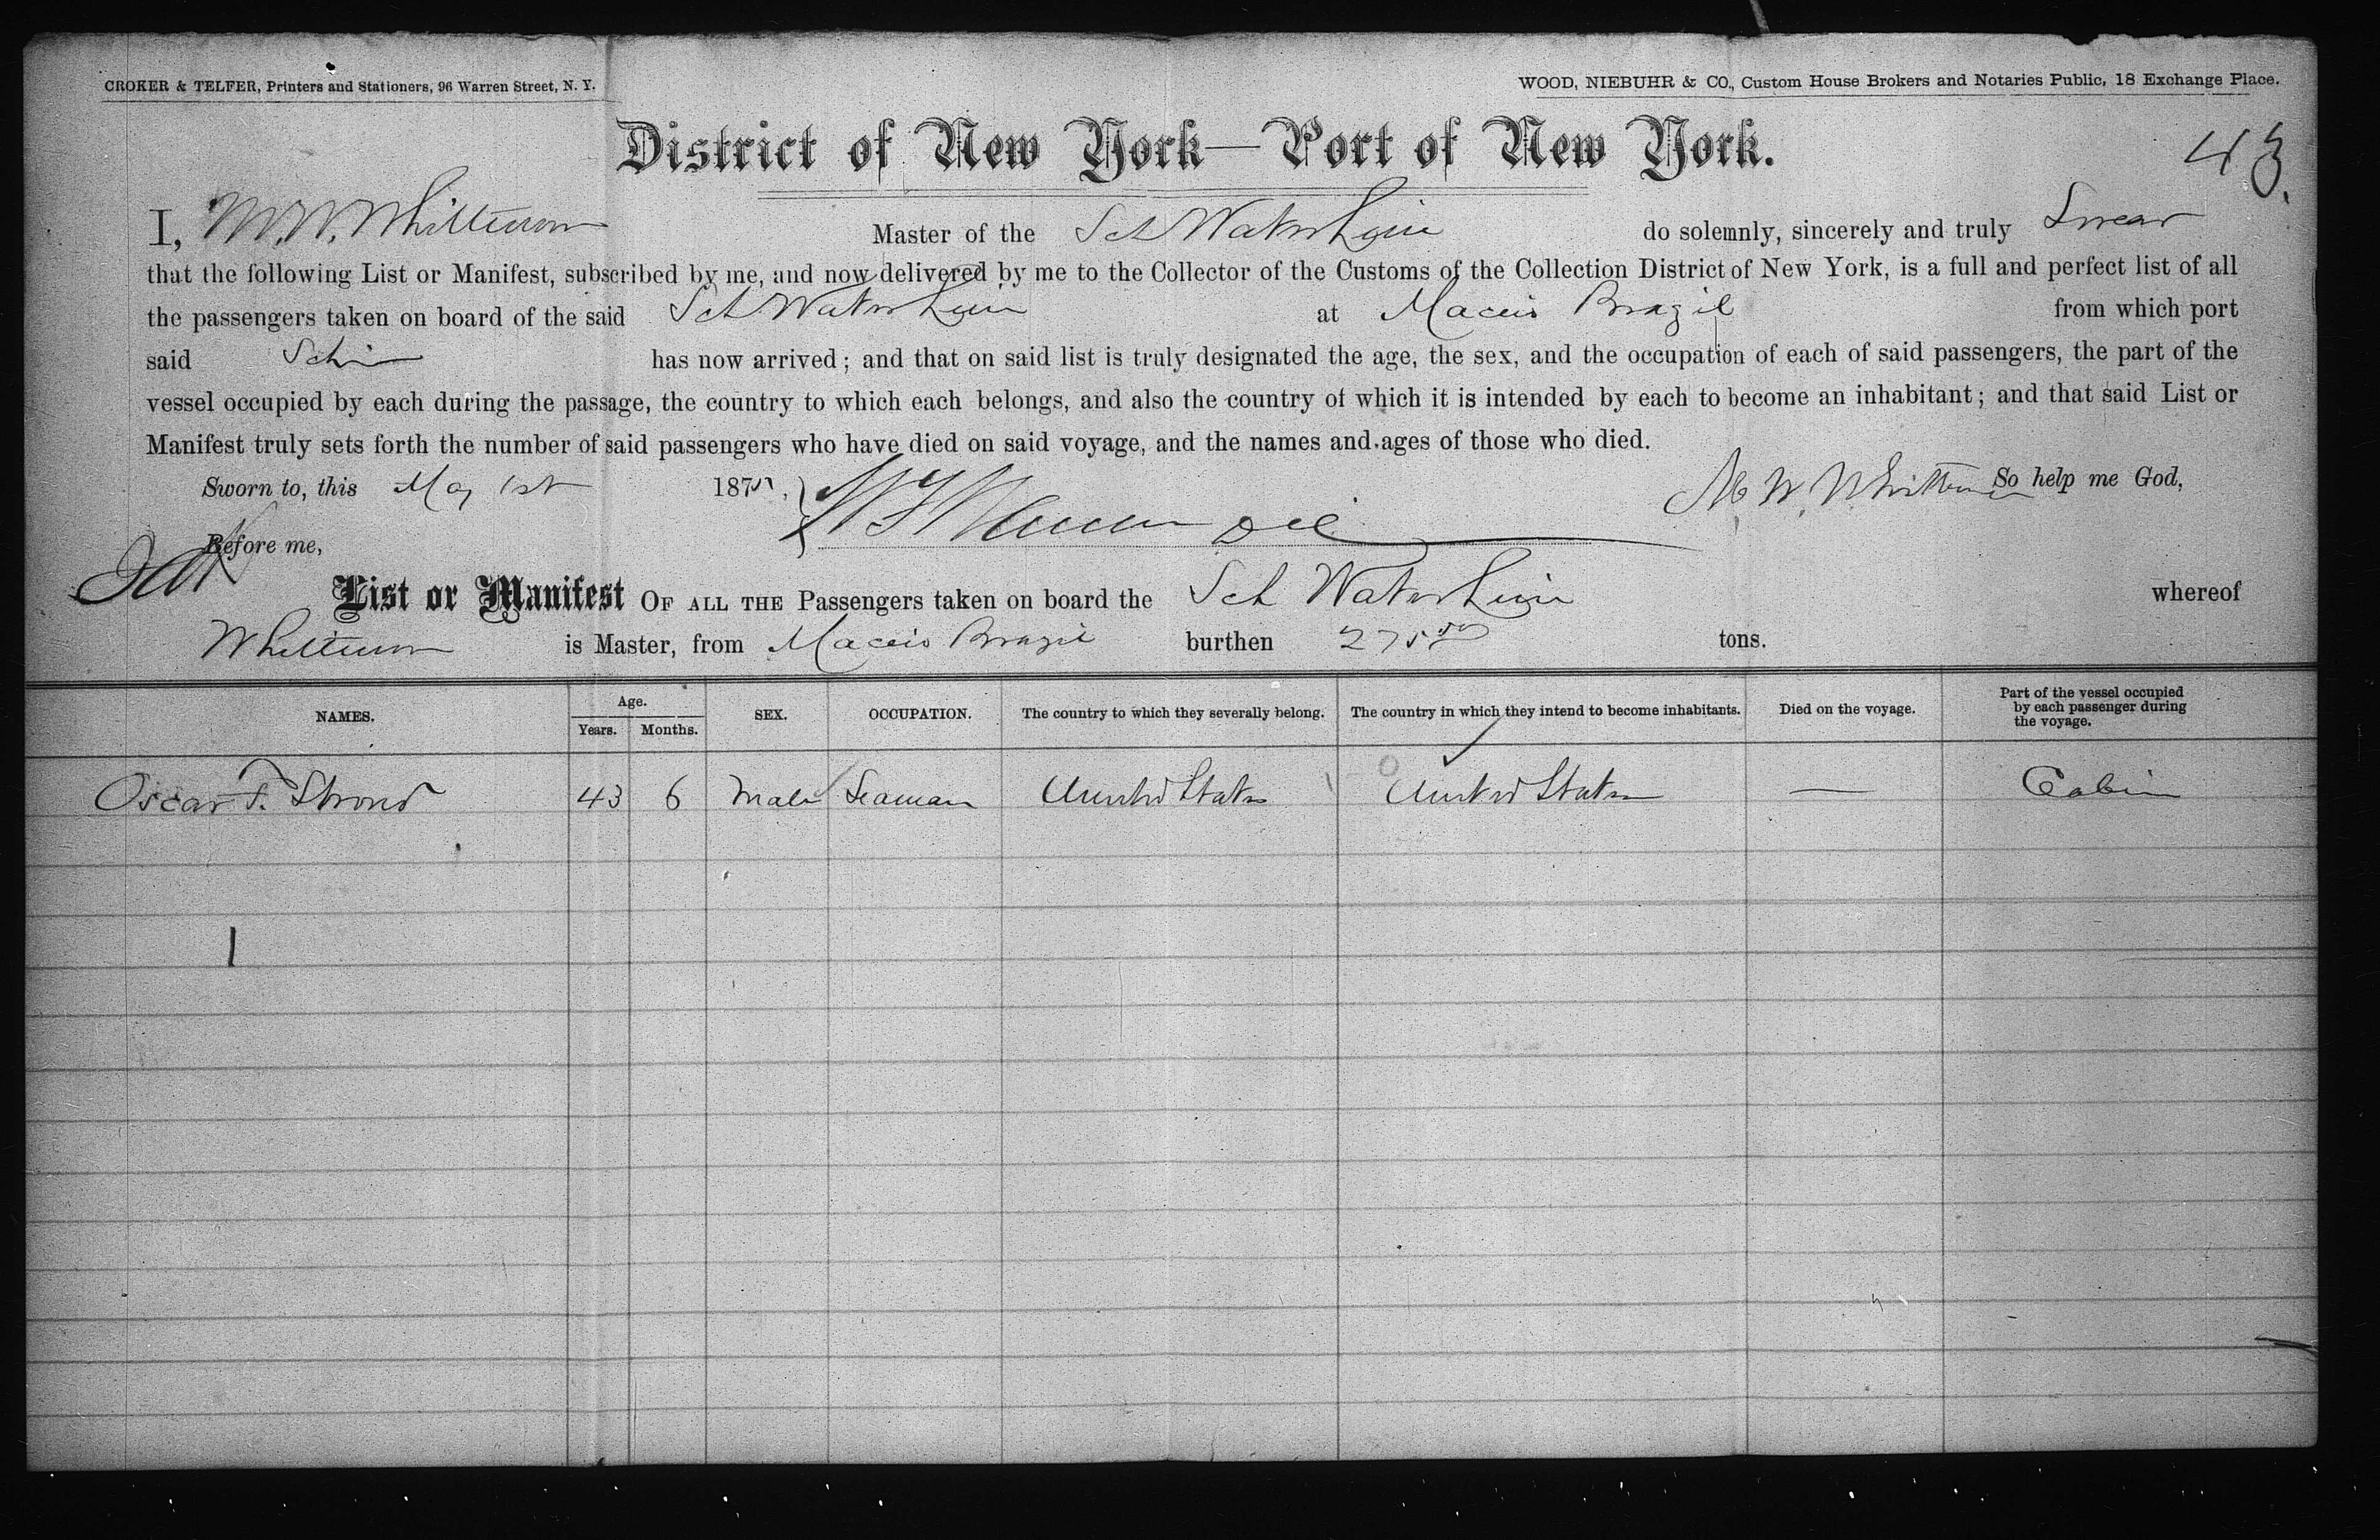 CROKER & TELFER, Printers and Stationers, 96 Warren Street, N. Y.
WOOD, NIEBUHR & CO., Custom House Brokers and Notaries Public, 18 Exchange Place.
District of New York—Port of New York.
43.
I, M. W. Master of the Sch do solemnly, sincerely and truly Swear
that the following List or Manifest, subscribed by me, and now delivered by me to the Collector of the Customs of the Collection District of New York, is a full and perfect list of all
the passengers taken on board of the said Sch at Maceio Brazil from which port
said Schr has now arrived; and that on said list is truly designated the age, the sex, and the occupation of each of said passengers, the part of the
vessel occupied by each during the passage, the country to which each belongs, and also the country of which it is intended by each to become an inhabitant; and that said List or
Manifest truly sets forth the number of said passengers who have died on said voyage, and the names and ages of those who died.
Sworn to, this May 1st 187 M. W. So help me God,
Before me,
List or Manifest OF ALL THE Passengers taken on board the Sch whereof
is Master, from Maceio Brazil burthen 275 tons.
NAMES. Age. Years. Months. SEX. OCCUPATION. The country to which they severally belong. The country in which they intend to become inhabitants. Died on the voyage. Part of the vessel occupied by each passenger during the voyage.
Oscar F. 43 6 Male Seaman United States United States — Cabin
1